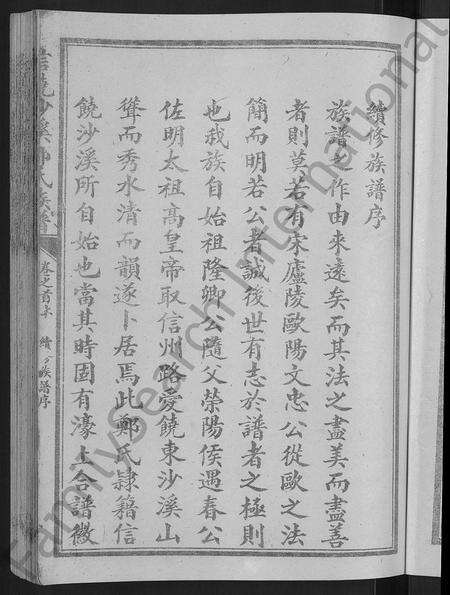 續修族譜序
族譜之作由來遠矣而其法之盡美而盡善
者則莫若有宋廬陵歐陽文忠公從歐之法
簡而明若公者誠後世有志於譜者之極則
也我族自始祖隆卿公隨父榮陽侯遇春公
佐明太祖高皇帝取信州路愛饒東沙溪山
聳而秀水清而韻遂卜居焉此鄭氏隸籍信
饒沙溪所自始也當其時固有濠上合譜徵
沙溪鄭氏族譜
卷之首
族譜序
FamilySearch International